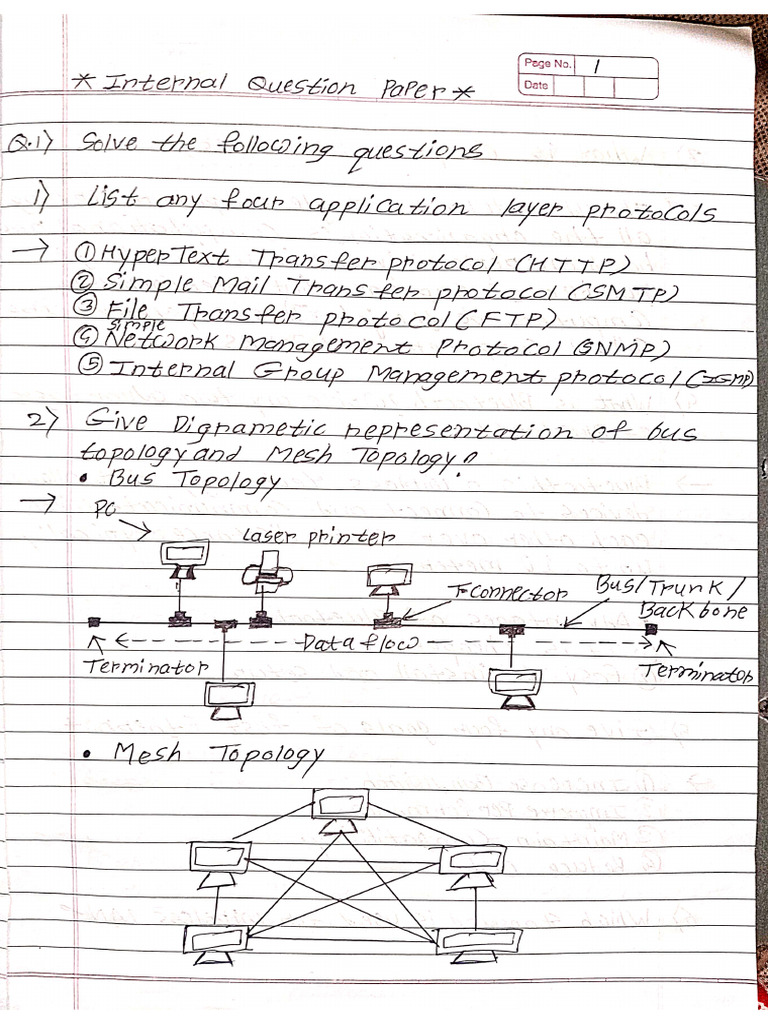 Page No. 1
Date
* Internal Question Paper *
Q.1) Solve the following questions
1) List any four application layer protocols
→ ① HyperText Transfer protocol (HTTP)
② Simple Mail Transfer protocol (SMTP)
③ File Transfer protocol (FTP)
④ Simple Network Management Protocol (SNMP)
⑤ Internal Group Management protocol (IGMP)
2) Give Digrametic representation of bus
topology and Mesh Topology?
• Bus Topology
→ PC
Laser printer
T-Connector
Bus/Trunk/
Backbone
Data flow
Terminator
Terminator
• Mesh Topology